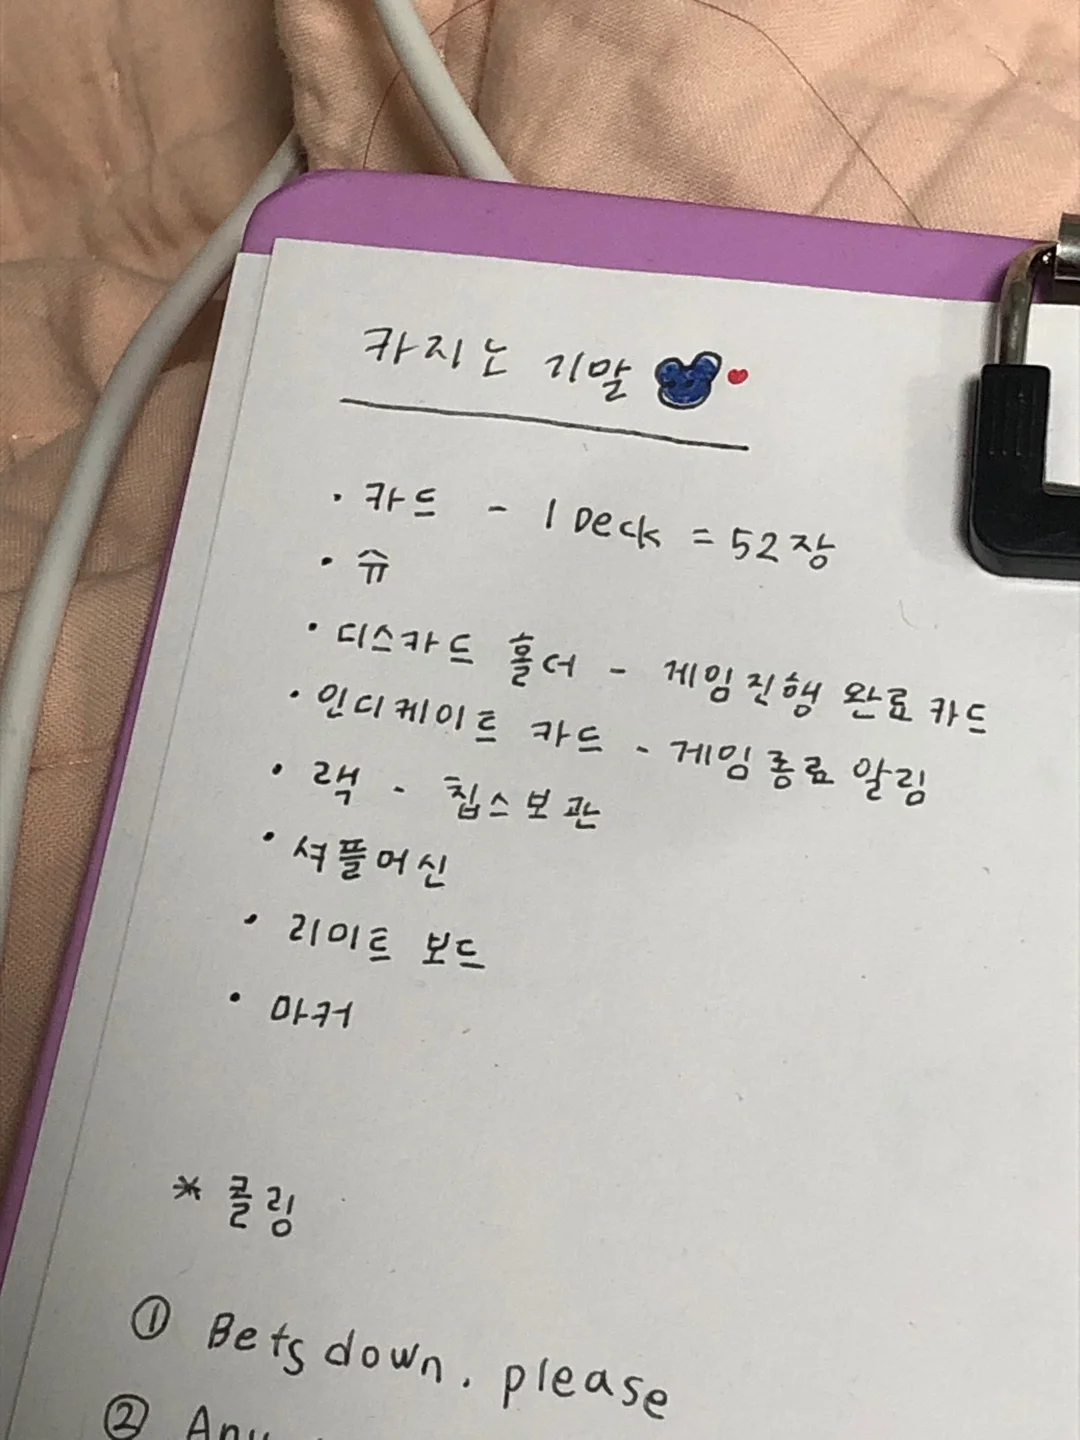 카지노 기말
· 카드 - 1 Deck = 52장
· 슈
· 디스카드 홀더 - 게임진행 완료카드
· 인디케이트 카드 - 게임종료 알림
· 랙 - 칩스보관
· 셔플머신
· 리미트 보드
· 마커
* 콜링
① Bets down, please
②